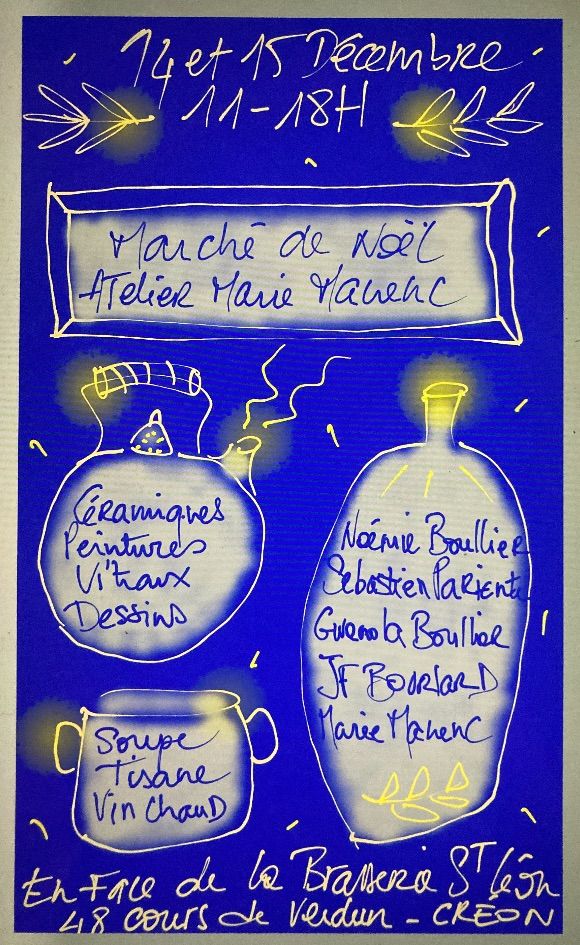 14 et 15 Décembre
11-18H
Marché de Noël
Atelier Marie Manenc
Céramiques
Peintures
Vitraux
Dessins
Noémie Boullier
Sébastien Pariente
Gwenola Boullier
JF Bourlard
Marie Manenc
Soupe
Tisane
Vin chaud
En Face de la Brasserie St Léon
48 cours de Verdun - CRÉON